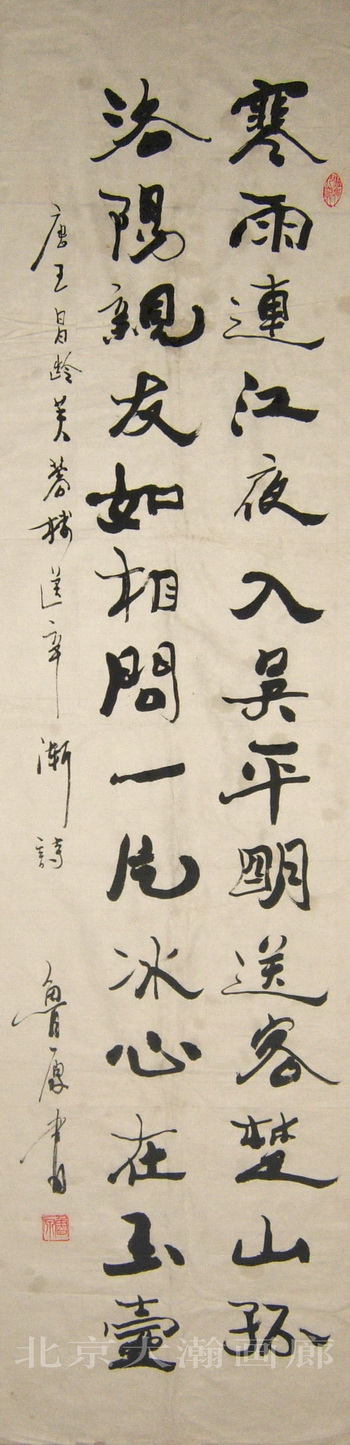 寒雨連江夜入吳平明送客楚山孤
洛陽親友如相問一片冰心在玉壺
唐王昌齡芙蓉樓送辛漸詩
魯原书
北京大瀚画廊